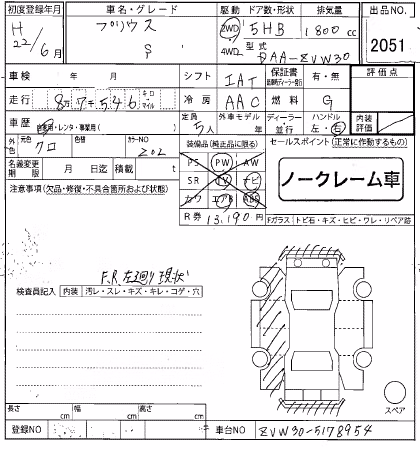 初度登録年月 車名・グレード 駆動 ドア数・形状 排気量 出品NO.
H22/6月 プリウス S 2WD 5HB 1800cc 2051
4WD 型式 DAA-ZVW30
車検 年 月 シフト IAT 保証書 有・無 評価点
走行 8万7546 キロ マイル 冷房 AAC 燃料 G
車歴 自家用・レンタ・事業用( ) 定員 5人 外車モデル 年 ディーラー・並行 ハンドル 左・右 内装評価
外色 元色 クロ カラーNO 202 装備品(純正品に限る) セールスポイント(正常に作動するもの)
名義変更期限 月 日迄 積載 t PS PW AW
注意事項(欠品・修復・不具合箇所および状態) SR TV ナビ ノークレーム車
カワ エアB ABS
R券 13,190円 Fガラス トビ石・キズ・ヒビ・ワレ・リペア跡
F.R.左廻り現状
検査員記入 内装 汚レ・スレ・キズ・キレ・コゲ・穴
スペア
長さ cm 幅 cm 高さ cm
登録NO 車台NO ZVW30-5178954